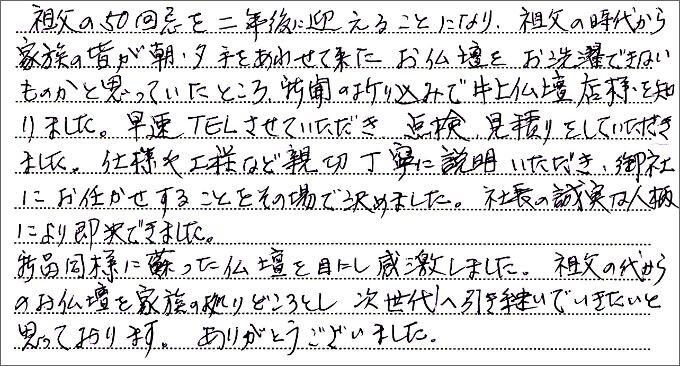 祖父の50回忌を二年後に迎えることになり、祖父の時代から
家族の皆が朝・夕手をあわせて来た お仏壇を お洗濯できない
ものかと思っていたところ、新聞の折り込みで井上仏壇店様を知
りました。早速TELさせていただき 点検、見積りをしていただき
ました。仕様や工程など親切丁寧に説明いただき、御社
にお任せすることをその場で決めました。社長の誠実な人柄
により即決できました。
新品同様に蘇った仏壇を目にし感激しました。祖父の代から
のお仏壇を家族の拠りどころとし 次世代へ引き継いでいきたいと
思っております。ありがとうございました。